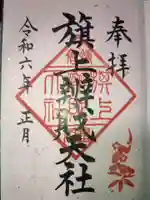 奉拝
旗上辨財天社
令和六年 正月